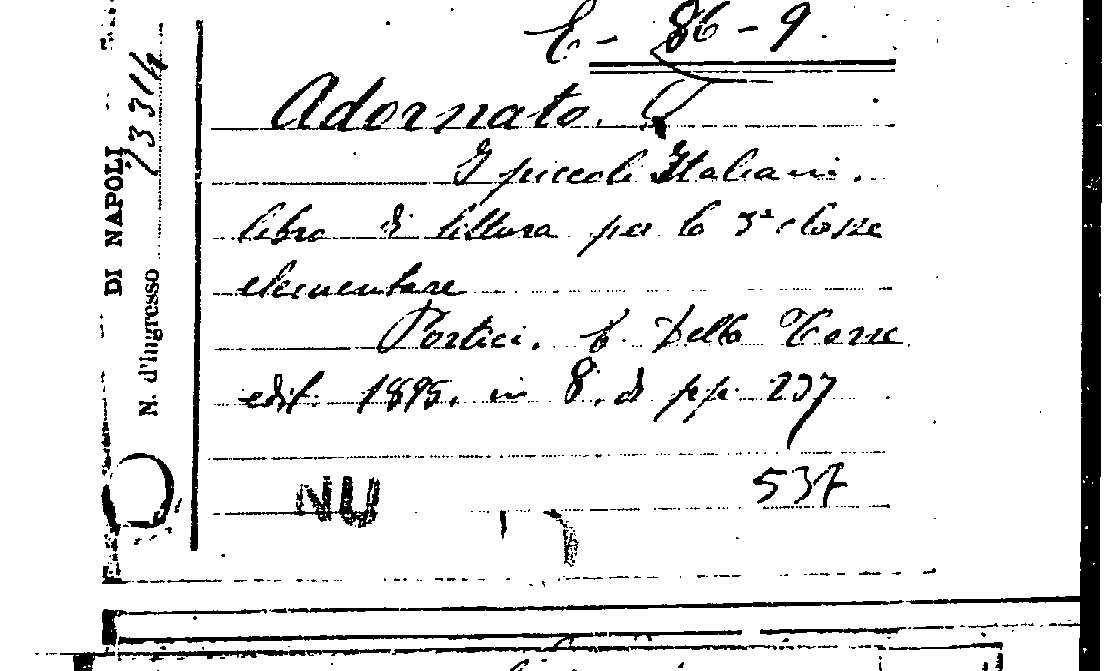 E - 86 - 9.
Adornato.
I piccoli Italiani.
libro di lettura per la 3ª classe
elementare
Portici. E. Della Torre
edit. 1895. in 8. di pp. 237
537
NU
DI NAPOLI
N. d'Ingresso 73314